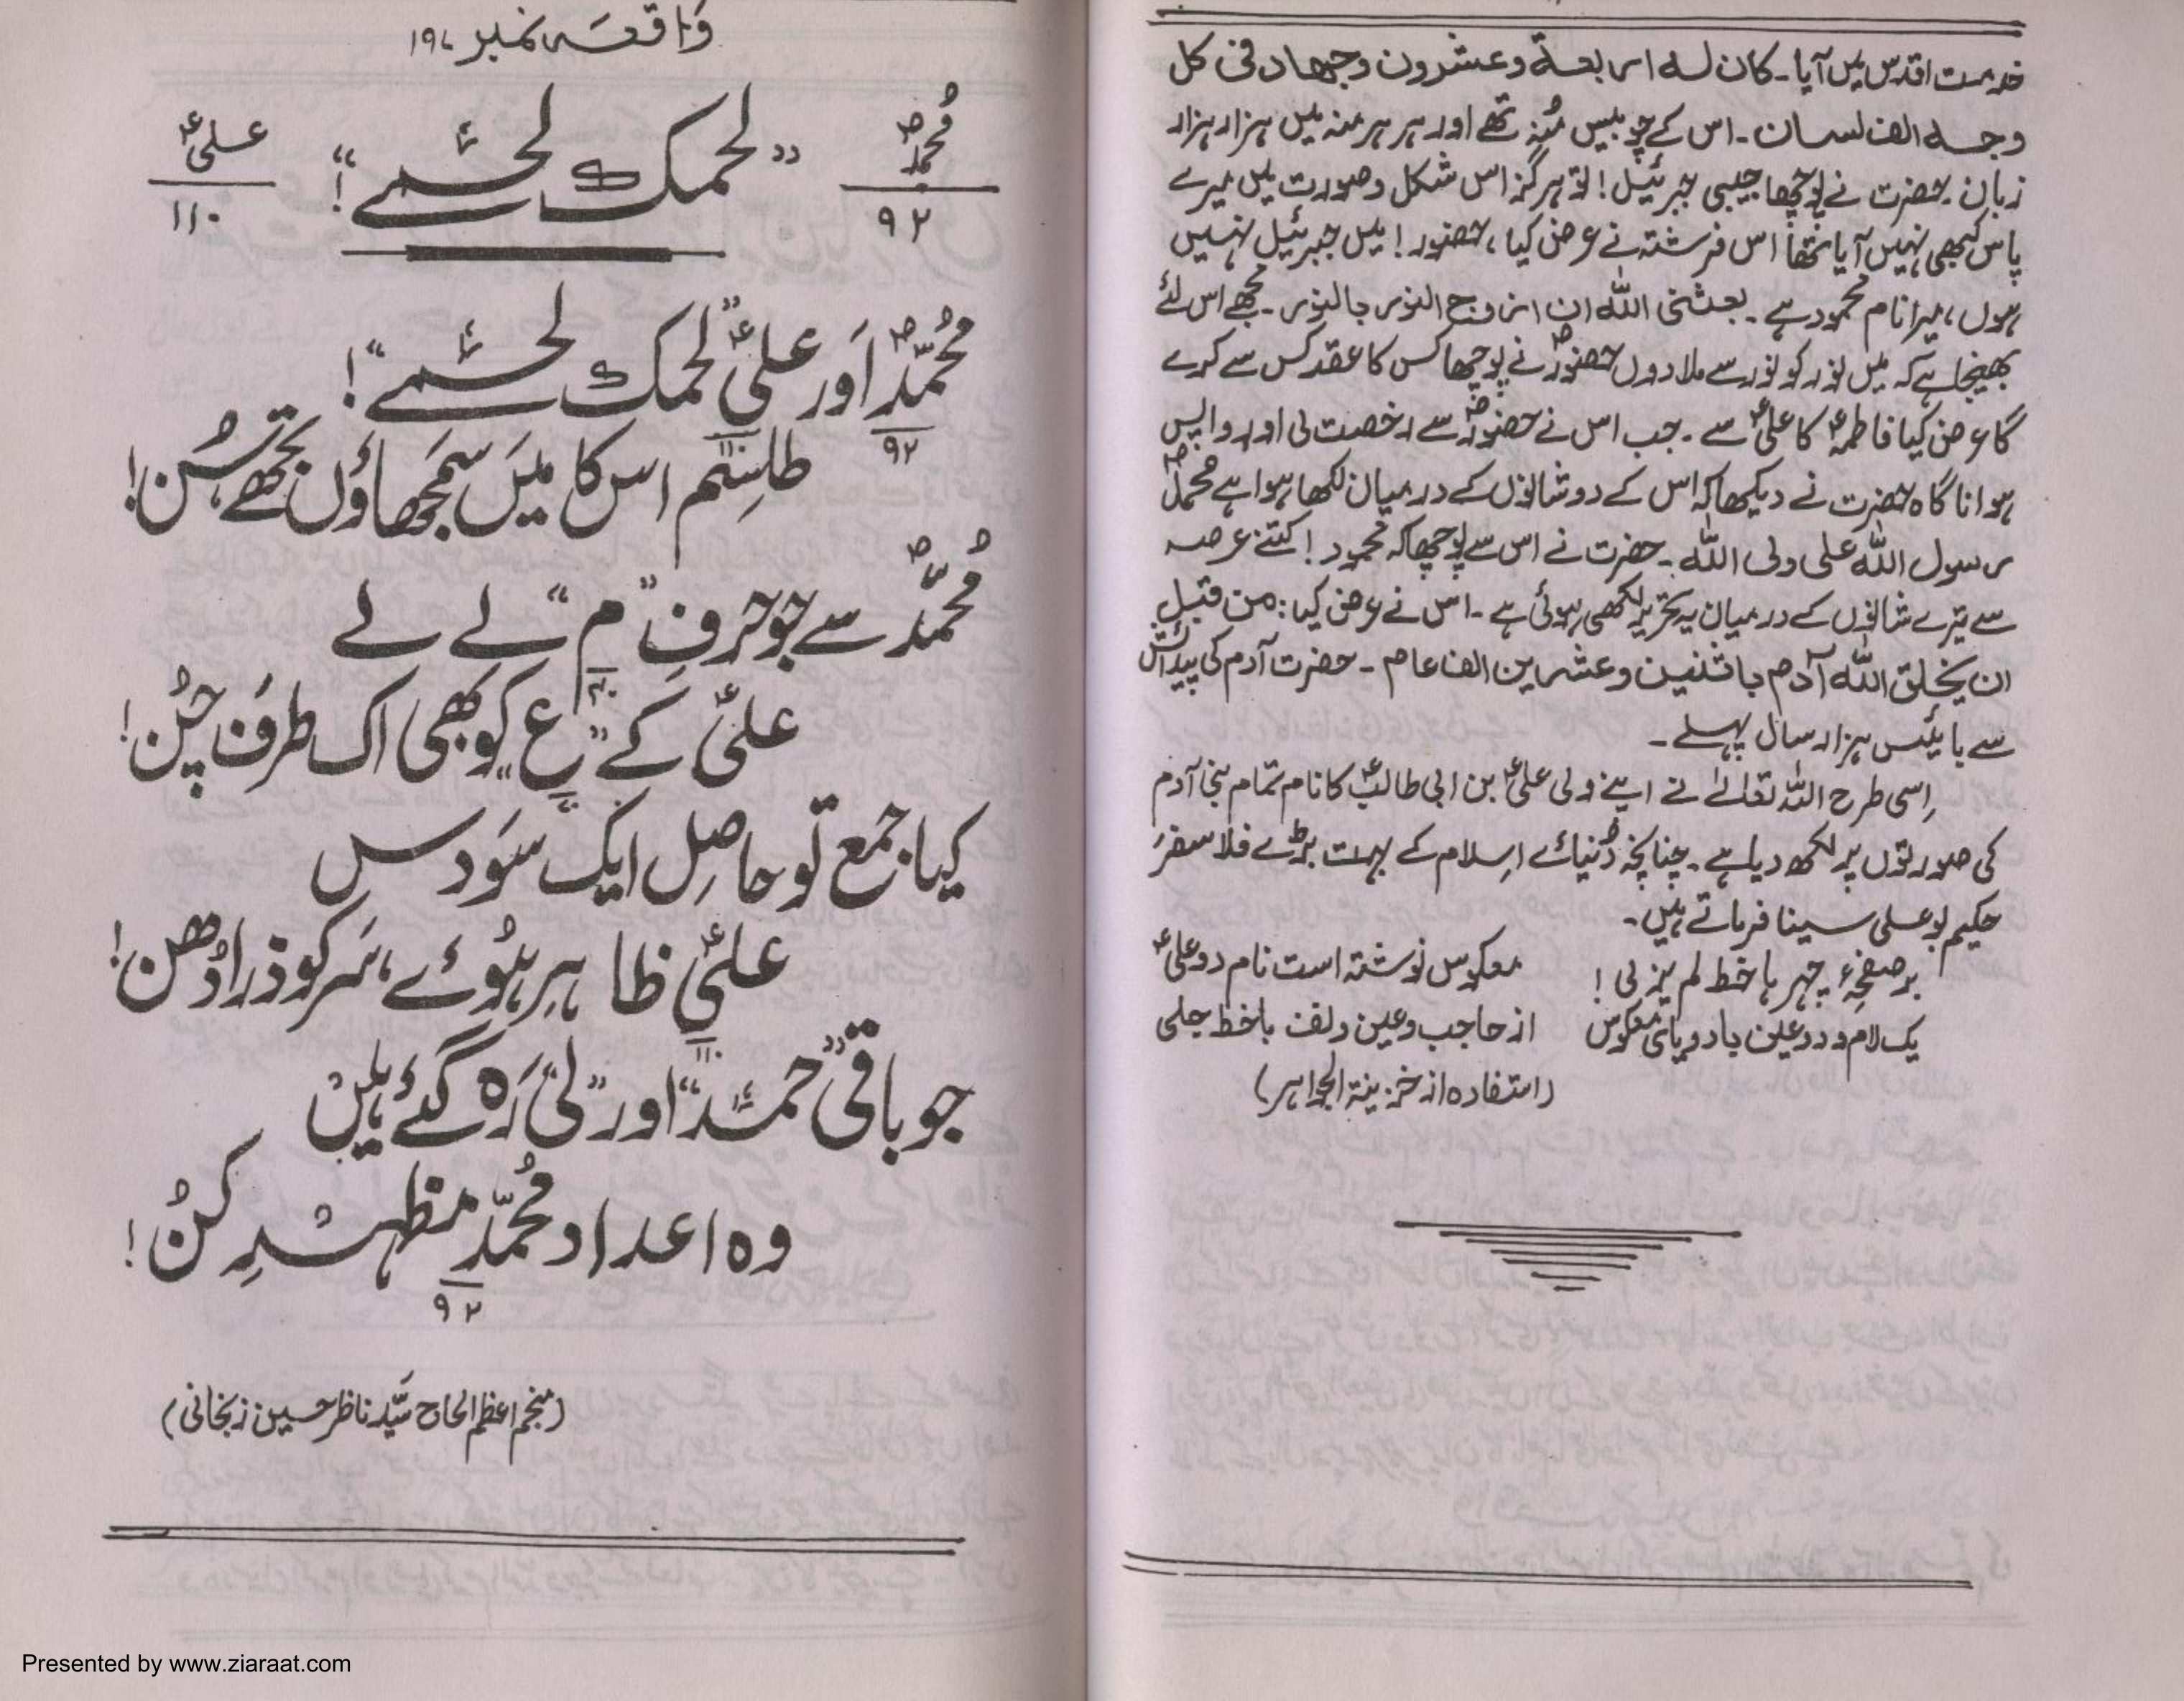 خدمت اقدس میں آیا۔ کان لہ اربعۃ وعشرون وجھا دفی کل
وجہ الف لسان۔ اس کے چوبیس مُنہ تھے اور ہر ہر منہ میں ہزار ہزار
زبان۔ حضرت نے پوچھا حبیبی جبرئیل! تو ہرگز اس شکل و صورت میں میرے
پاس کبھی نہیں آیا تھا اس فرشتہ نے عرض کیا، حضور! میں جبرئیل نہیں
ہوں، میرا نام محمود ہے۔ بعثنی اللہ ان ازوج النور بالنور۔ مجھے اس لئے
بھیجا ہے کہ میں نور کو نور سے ملا دوں حضورؐ نے پوچھا کس کا عقد کس سے کرے
گا عرض کیا فاطمہؑ کا علیؑ سے۔ جب اس نے حضورؐ سے رخصت لی اور واپس
ہوا ناگاہ حضرت نے دیکھا کہ اس کے دو شانوں کے درمیان لکھا ہوا ہے محمدؐ
رسول اللہ علی ولی اللہ۔ حضرت نے اس سے پوچھا کہ محمود! کتنے عرصہ
سے تیرے شانوں کے درمیان یہ تحریر لکھی ہوئی ہے۔ اس نے عرض کیا: من قبل
ان یخلق اللہ آدم باثنین وعشرین الف عام۔ حضرت آدم کی پیدائش
سے بائیس ہزار سال پہلے۔
اِسی طرح اللہ تعالےٰ نے اپنے ولی علیؑ بن ابی طالبؑ کا نام تمام بنی آدم
کی صورتوں پر لکھ دیا ہے۔ چنانچہ دُنیائے اِسلام کے بہت بڑے فلاسفر
حکیم بو علی سینا فرماتے ہیں۔
بر صفحۂ چہر ہا خط لم یزلی! معکوس نوشتہ است نام دو علیؑ
یک لام و دو عین با دو یائ معکوس از حاجب و عین و لف باخط جلی
(استفادہ از خزینۃ الجواہر)
وَاقعہ نمبر ۱۹۷
محُمدؐ ۹۲ "لحمک لحمے"! علیؑ ۱۱۰
محُمّدؐ اَور علیؑ "لحمک لحمے"!
۹۲ ۱۱۰
طلسِم اس کا میَں سمَجھاؤں تجھے سُن!
محُمّدؐ سے جو حرفِ "م" لے لے
۴۰
علیؑ کے "ع" کو بھی اک طرفَ چُن!
کیا جمع تو حاصِل ایک سَو دس
علیؑ ظاہِر ہُوئے، سَر کو ذرا دُھن!
۱۱۰
جو باقی "حمد" اور "لی" رَہ گئے ہیں
وہ اعداد محُمّد مظہرِ کنُ!
۹۲
(منجم اعظم الحاج سَیّد ناظر حسین زنجانی)
Presented by www.ziaraat.com